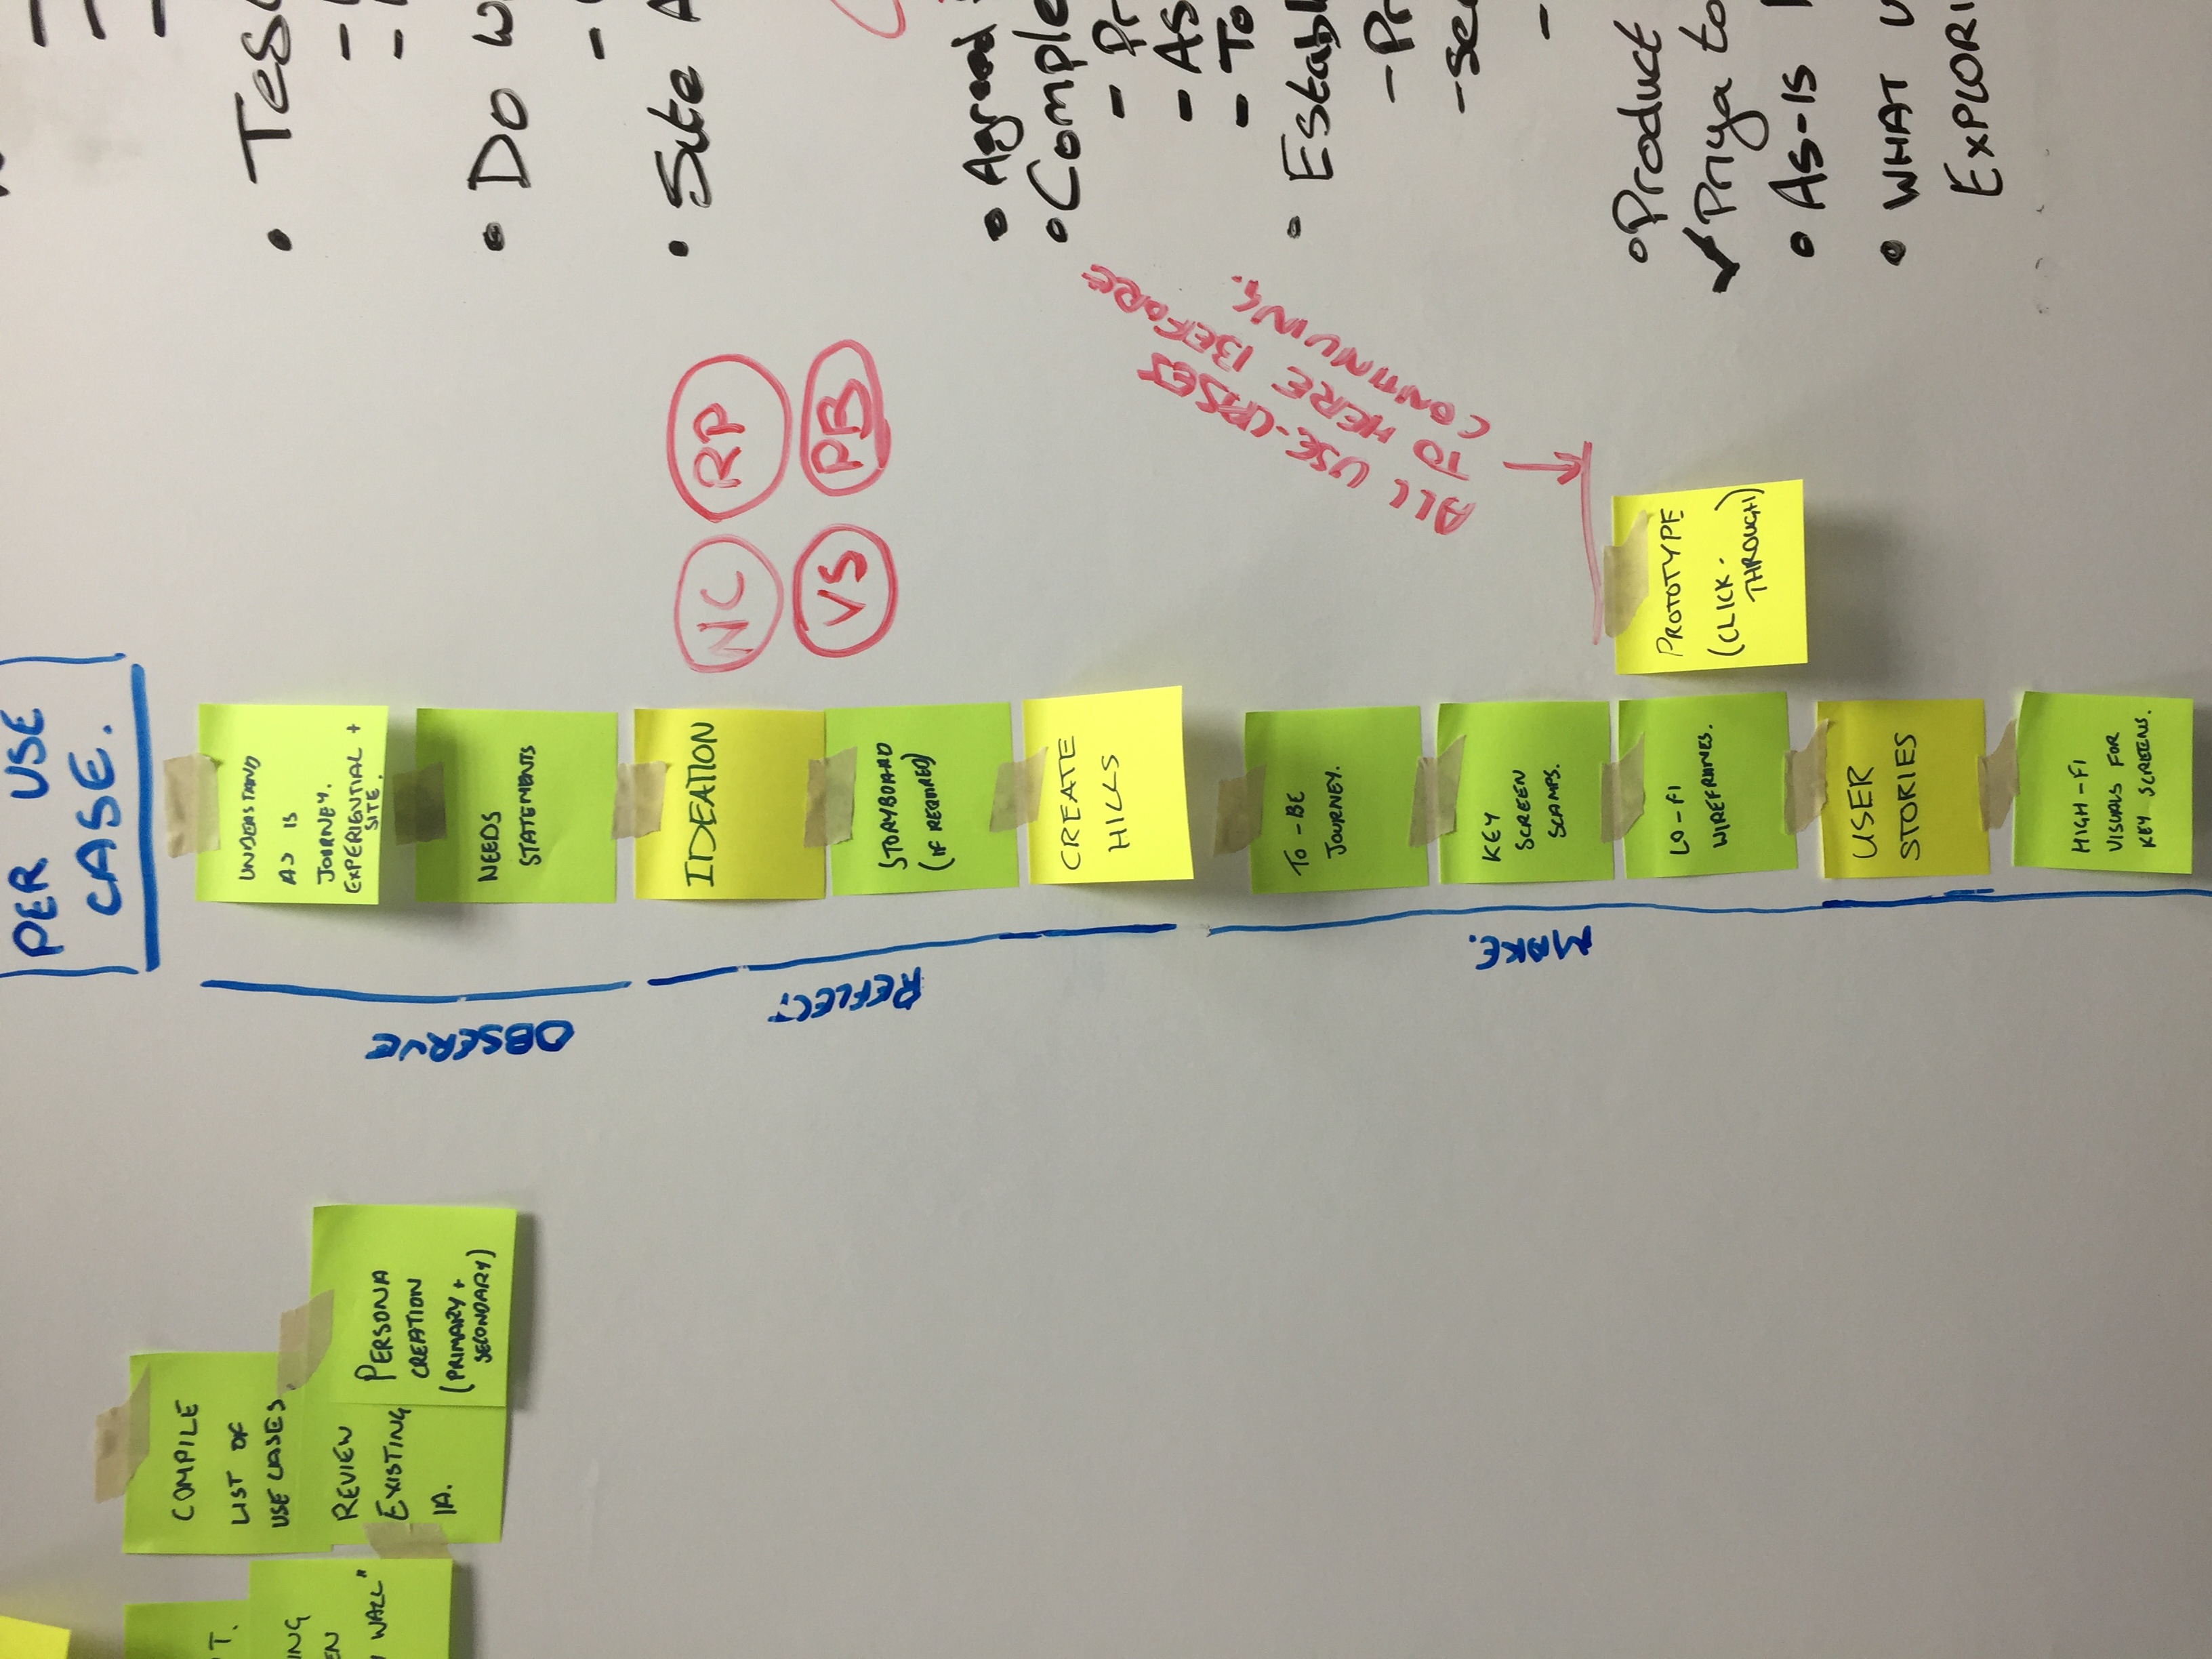 PER USE
CASE.
T.
ING
EN
WALL"
COMPILE
LIST OF
USE CASES
REVIEW
EXISTING
IA.
PERSONA
CREATION
(PRIMARY +
SECONDARY)
OBSERVE
REFLECT
MAKE.
UNDERSTAND
AS IS
JOURNEY.
EXPERIENTIAL +
SITE.
NEEDS
STATEMENTS
IDEATION
NC RP
VS PB
STORYBOARD
(IF REQUIRED)
CREATE
HILLS
TO-BE
JOURNEY.
KEY
SCREEN
SCAMPS.
ALL USE-CASES
TO HERE BEFORE
CONTINUING.
LO-FI
WIREFRAMES.
PROTOTYPE
(CLICK-
THROUGH)
USER
STORIES
HIGH-FI
VISUALS FOR
KEY SCREENS.
• Tes
• Do W
• Site A
• Agreed
• Comple
- Pr
- As
- To
• Establ
- Pr
- sec
-
• Product
✓ Priya to
• As-Is
• WHAT U
EXPLORI